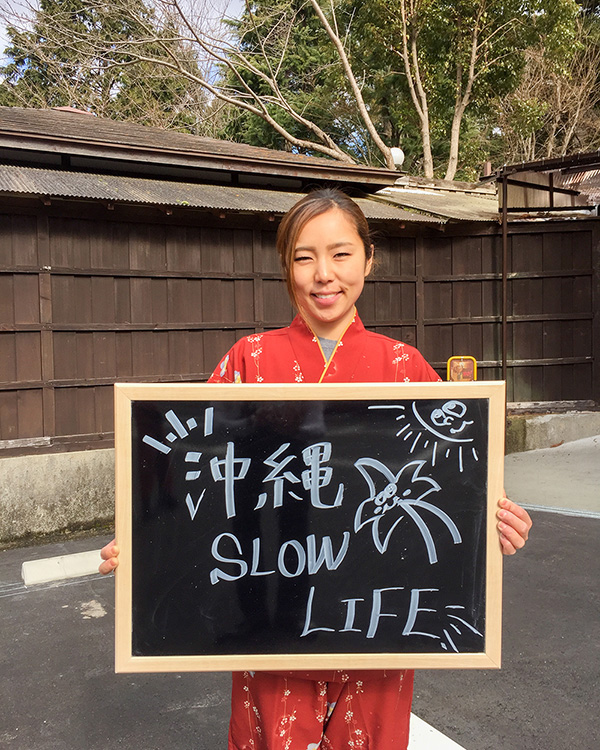 沖縄
SLOW
LIFE